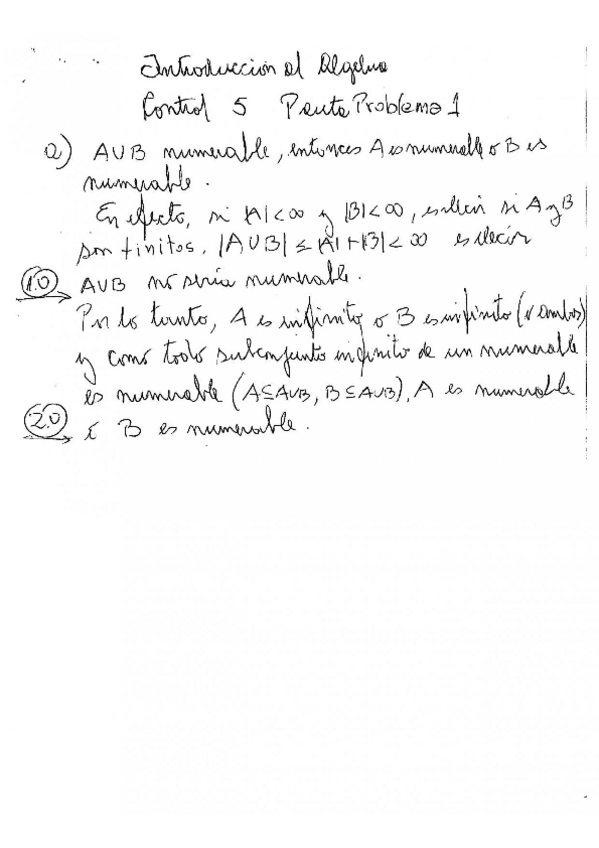 Introducción al Algebra
Control 5 Pauta Problema 1
a) A∪B numerable, entonces A es numerable o B es
numerable.
En efecto, si |A|<∞ y |B|<∞, es decir si A y B
son finitos, |A∪B| ≤ |A|+|B| < ∞ es decir
1.0 A∪B no sería numerable.
Por lo tanto, A es infinito o B es infinito (o ambos)
y como todo subconjunto infinito de un numerable
es numerable (A⊆A∪B, B⊆A∪B), A es numerable
2.0 B es numerable.